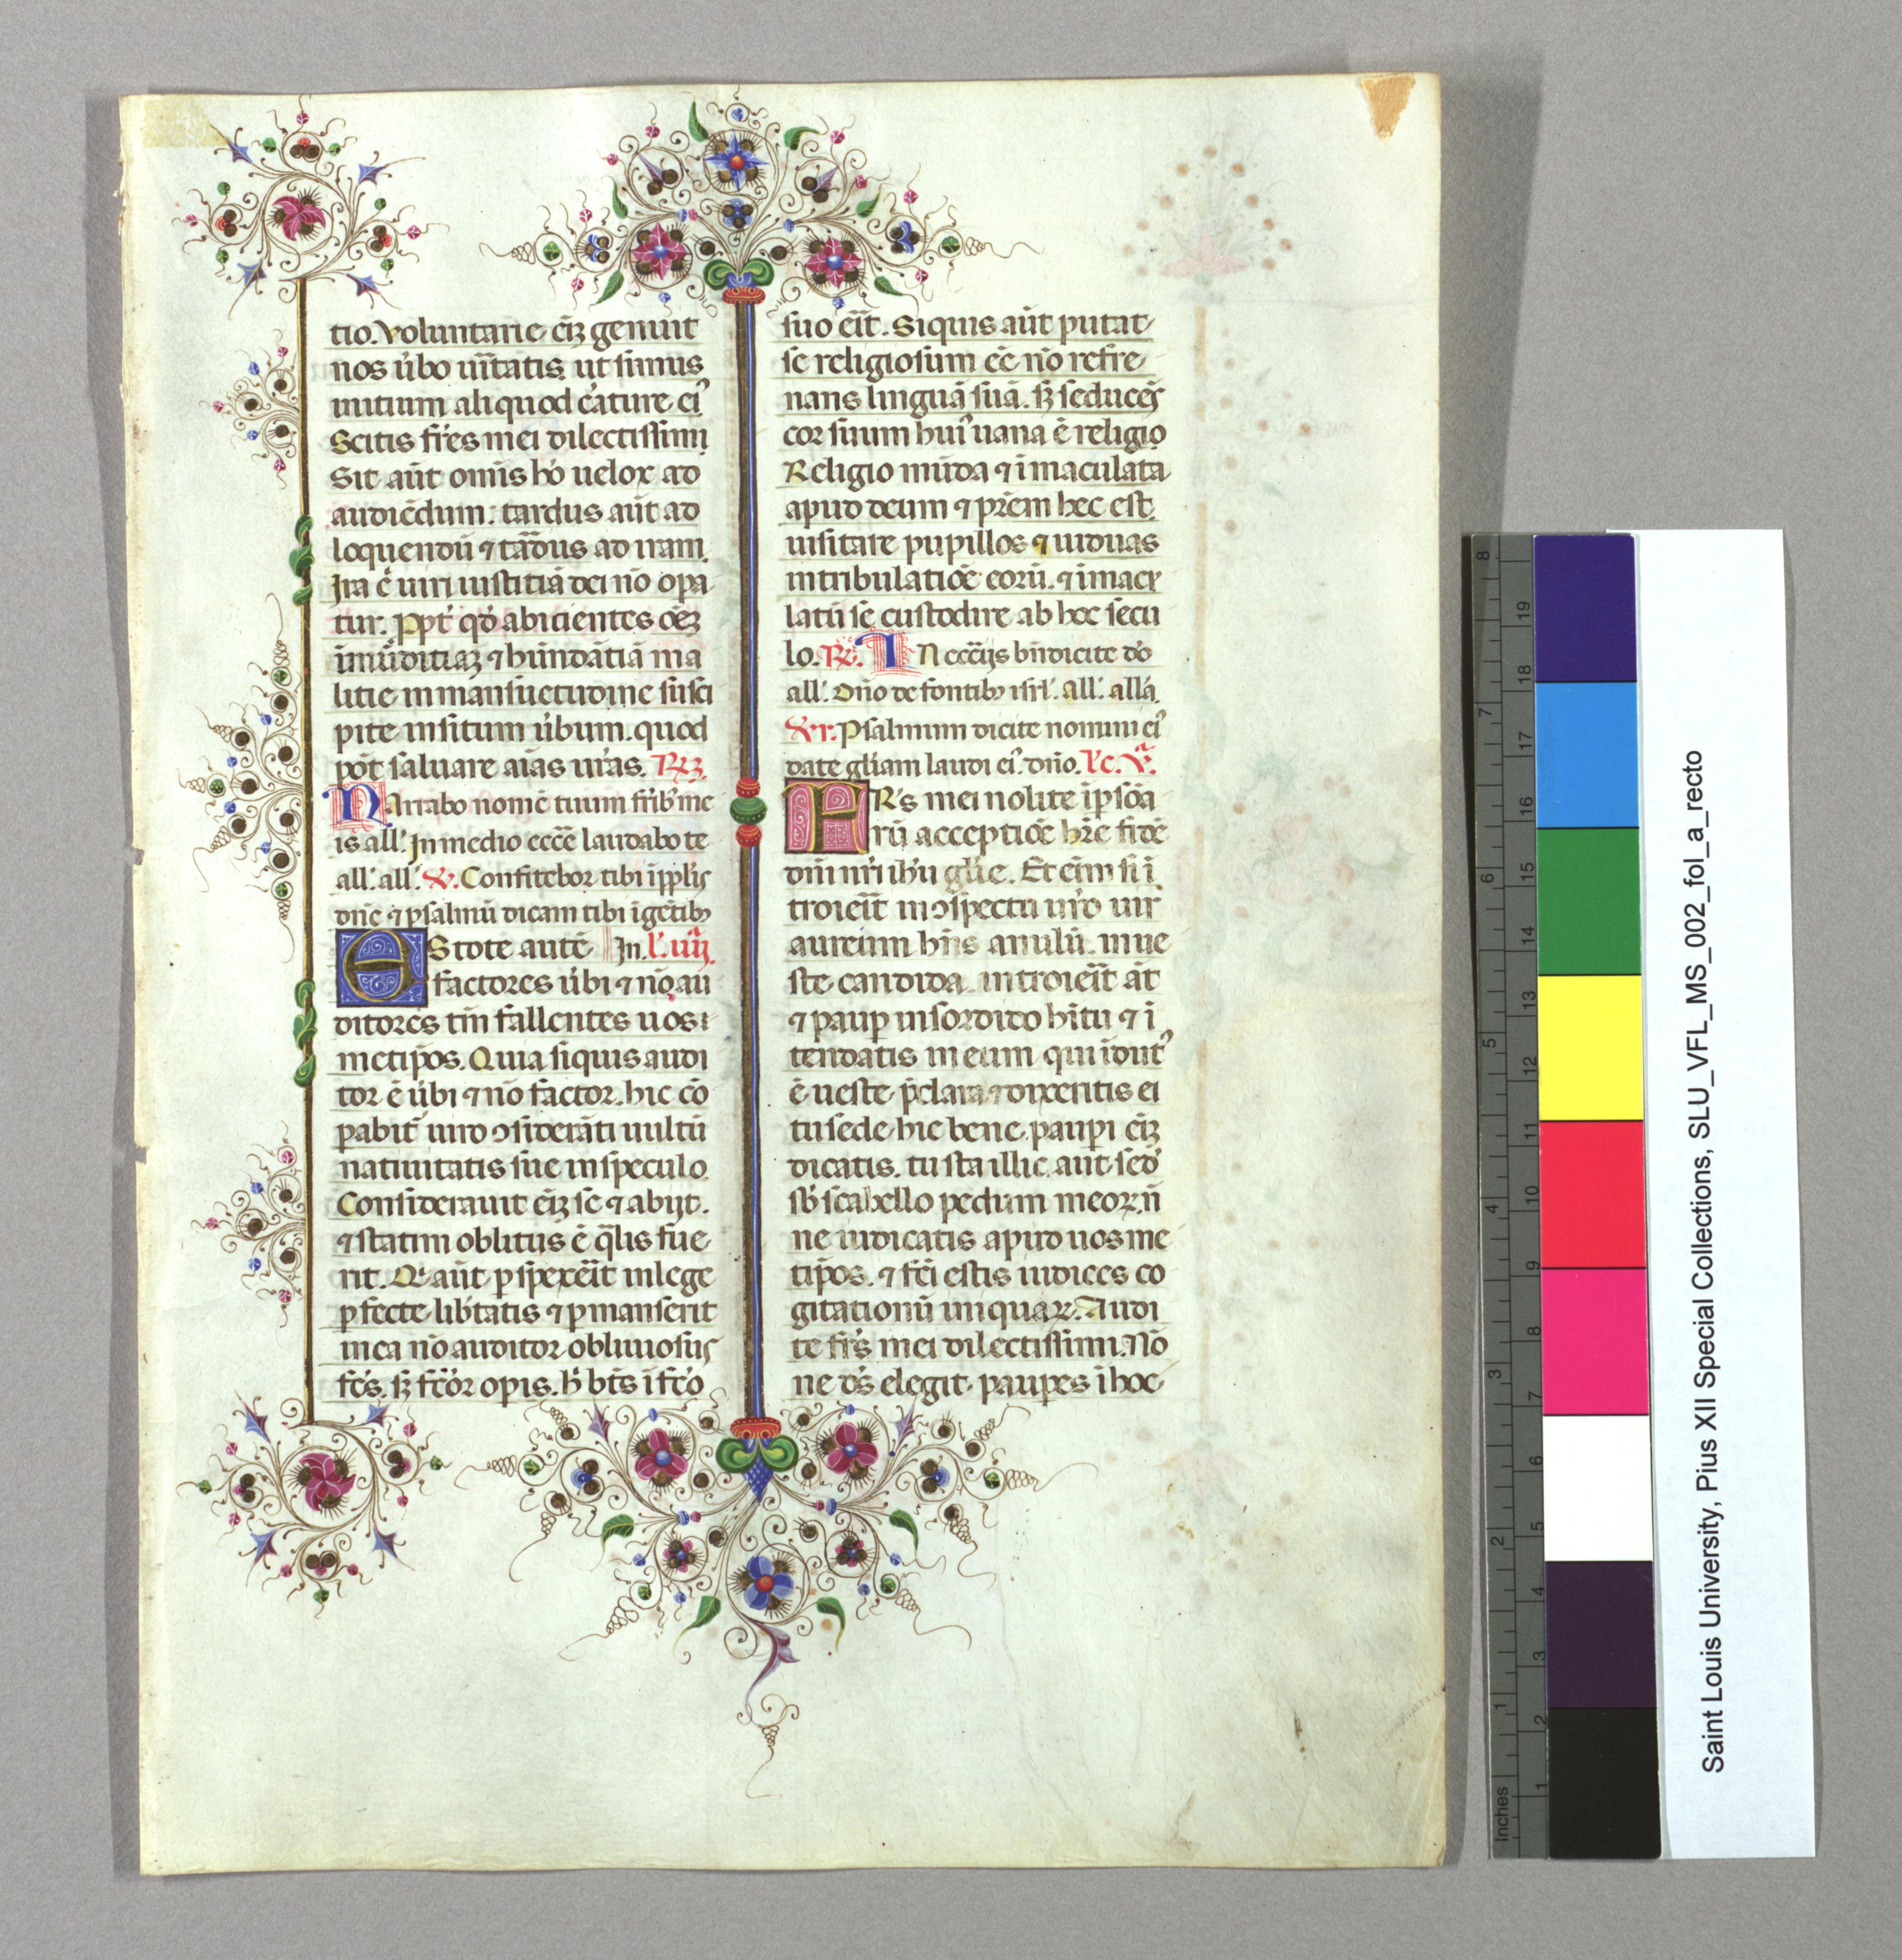 tio. Voluntarie ei᷒ꝫ genuit
nos u̓bo uı̄tatis ut simus
initium aliquod c̓ature ei᾽
Scitis fr̄es mei dilectissimi
Sit aūt omīs hō uelox ad
audiēdum: tardus aūt ad
loquendū ⁊ tādus ad iram.
Ira .n. uiri iustitiā dei nō opa
tur. Ppt̄ qd̄ abicientes oēꝫ
īmūditiaꝫ ⁊ hūndātiā ma
litie in mansuetudine susci
pite insitum u̓bum. quod
pōt saluare aīas ur̄as. Rꝫ.
NArrabo nomē tuum fr̄ib᾽ me
is all᾽. In medio eccē laudabo te
all᾽. all᾽. V. Confitebor tibi īpp̄lis
dn̄e ⁊ psalmū dicam tibi īgētibꝫ
EStote autē In. l᾽. iiij.
factores u̓bi ⁊ nō au
ditores tm̄ fallentes uos
metip̄os. Quia siquis audi
tor ē u̓bi ⁊ nō factor. hic cō
pabit᾽ uiro ↄsiderāti uultū
natiuitatis sue in speculo.
Considerauit eī se ⁊ abijt.
⁊ statim oblitus ē q̄lis fue
rit. Q᾽ aūt pspexeīt in lege
pfecte lib̄tatis ⁊ pmanserit
in ea nō auditor obliuiosus
fc̄s. sꝫ fc̄or opis. h̓ bt̄s ī fc̄o
suo eīt. Siquis aūt putat
se religiosum eē nō refre
nans linguā suā. sꝫ seducēs
cor suum hui᾽ uana ē religio
Religio mūda ⁊ īmaculata
apud deum ⁊ pr̄em hec est.
uisitare pupillos ⁊ uiduas
in tribulatiōe eorū. ⁊ īmacu
latū se custodire ab hoc secu
lo. R. IN ecc̄ijs bn̄dicite dō
all᾽. Dn̄o de fontibꝫ isrl᾽. all᾽. all᾽a.
V. Psalmum dicite nomini ei᾽
date gl̄iam laudi ei᾽. dn̄o. l᾽c. v.ᵃ
FR̄s mei nolite ī p̄sōa
rū acceptiōe hr̄e fidē
dn̄i nr̄i ih̄u gl̄ie. Et eīm si ī
troieīt in ↄspectu ur̄o uir
aureum hn̄s anulū. in ue
ste candida. introieīt āt
⁊ paup in sordido hītu ⁊ ī
tendatis in eum qui īdut᾽
ē ueste p̄clara ⁊ dixeritis ei
tu sede hic bene. paupi eīꝫ
dicatis. tu sta illic aut sed᾽
sb̄ scabello pedum meoꝝ. n̄
ne iudicatis apud uosme
tip̄os. ⁊ fc̄i estis iudices co
gitationū iniquaꝝ. Audi
te fr̄s mei dilectissimi. Nō
ne ds̄ elegit paupes ī hoc
Saint Louis University, Pius XII Special Collections, SLU_VFL_MS_002_fol_a_recto
Inches
1 2 3 4 5 6 7 8
1 2 3 4 5 6 7 8 9 10 11 12 13 14 15 16 17 18 19